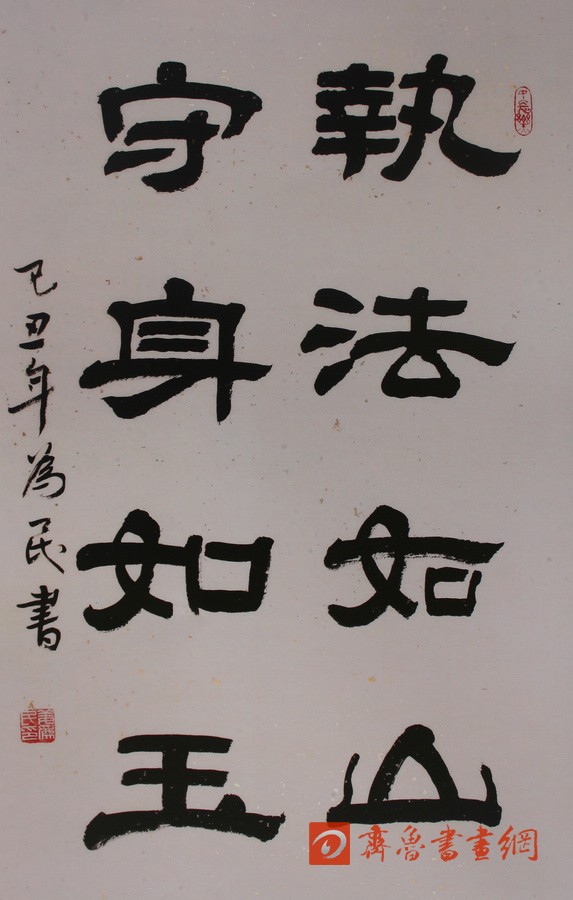 執法如山
守身如玉
己丑年為民書
齊魯書畫網